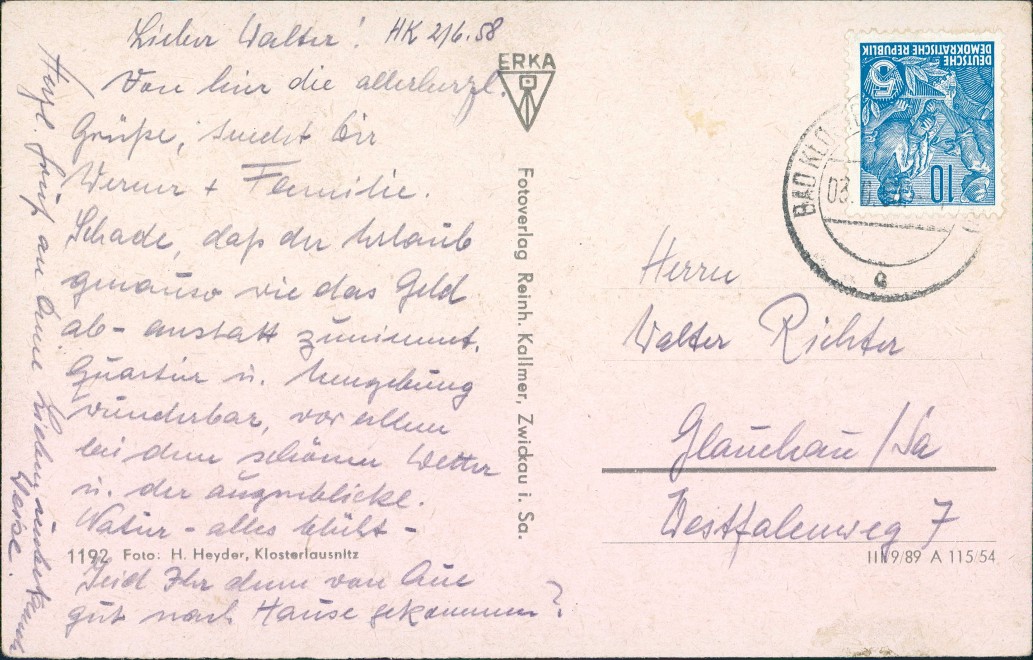 Lieber Walter! HK 2/6.58
Von hier die allerherzl.
Grüße, sendet Dir
Werner + Familie.
Schade, daß der Urlaub
genauso wie das Geld
ab- anstatt zunimmt.
Quartier u. Umgebung
wunderbar, vor allem
bei dem schönen Wetter
u. der augenblickl.
Natur - alles blüht -
Seid Ihr denn von Aue
gut nach Hause gekommen?
Herzl. Gruß an Deine Lieben
ERKA
Fotoverlag Reinh. Kallmer, Zwickau i. Sa.
1192 Foto: H. Heyder, Klosterlausnitz
DEUTSCHE
DEMOKRATISCHE REPUBLIK
5
10
BAD KLO
03.
a
Herrn
Walter Richter
Glauchau/Sa
Westfalenweg 7
III/9/89 A 115/54